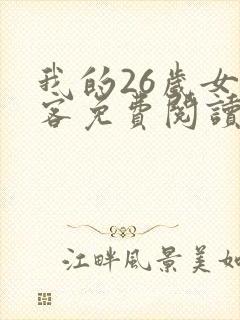 我的26歲女
客免費閱讀
江畔風景美如